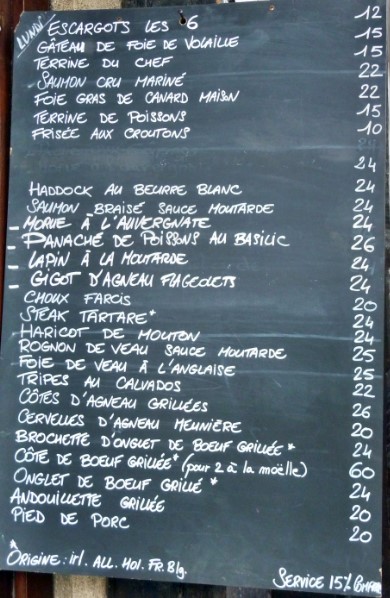 LUNDI
ESCARGOTS LES 6 12
GÂTEAU DE FOIE DE VOLAILLE 15
TERRINE DU CHEF 15
SAUMON CRU MARINÉ 22
FOIE GRAS DE CANARD MAISON 22
TERRINE DE POISSONS 15
FRISÉE AUX CROUTONS 10
24
24
HADDOCK AU BEURRE BLANC 24
SAUMON BRAISÉ SAUCE MOUTARDE 24
- MORUE À L'AUVERGNATE 24
- PANACHÉ DE POISSONS AU BASILIC 26
- LAPIN À LA MOUTARDE 24
- GIGOT D'AGNEAU FLAGEOLETS 24
CHOUX FARCIS 20
STEAK TARTARE* 24
HARICOT DE MOUTON 24
ROGNON DE VEAU SAUCE MOUTARDE 25
FOIE DE VEAU À L'ANGLAISE 25
TRIPES AU CALVADOS 22
CÔTES D'AGNEAU GRILLÉES 26
CERVELLES D'AGNEAU MEUNIÈRE 20
BROCHETTE D'ONGLET DE BOEUF GRILLÉE* 24
CÔTE DE BOEUF GRILLÉE* (pour 2 à la moëlle) 60
ONGLET DE BOEUF GRILLÉ* 24
ANDOUILLETTE GRILLÉE 20
PIED DE PORC 20
* ORIGINE: irl. ALL. Hol. FR. Blg.
SERVICE 15%